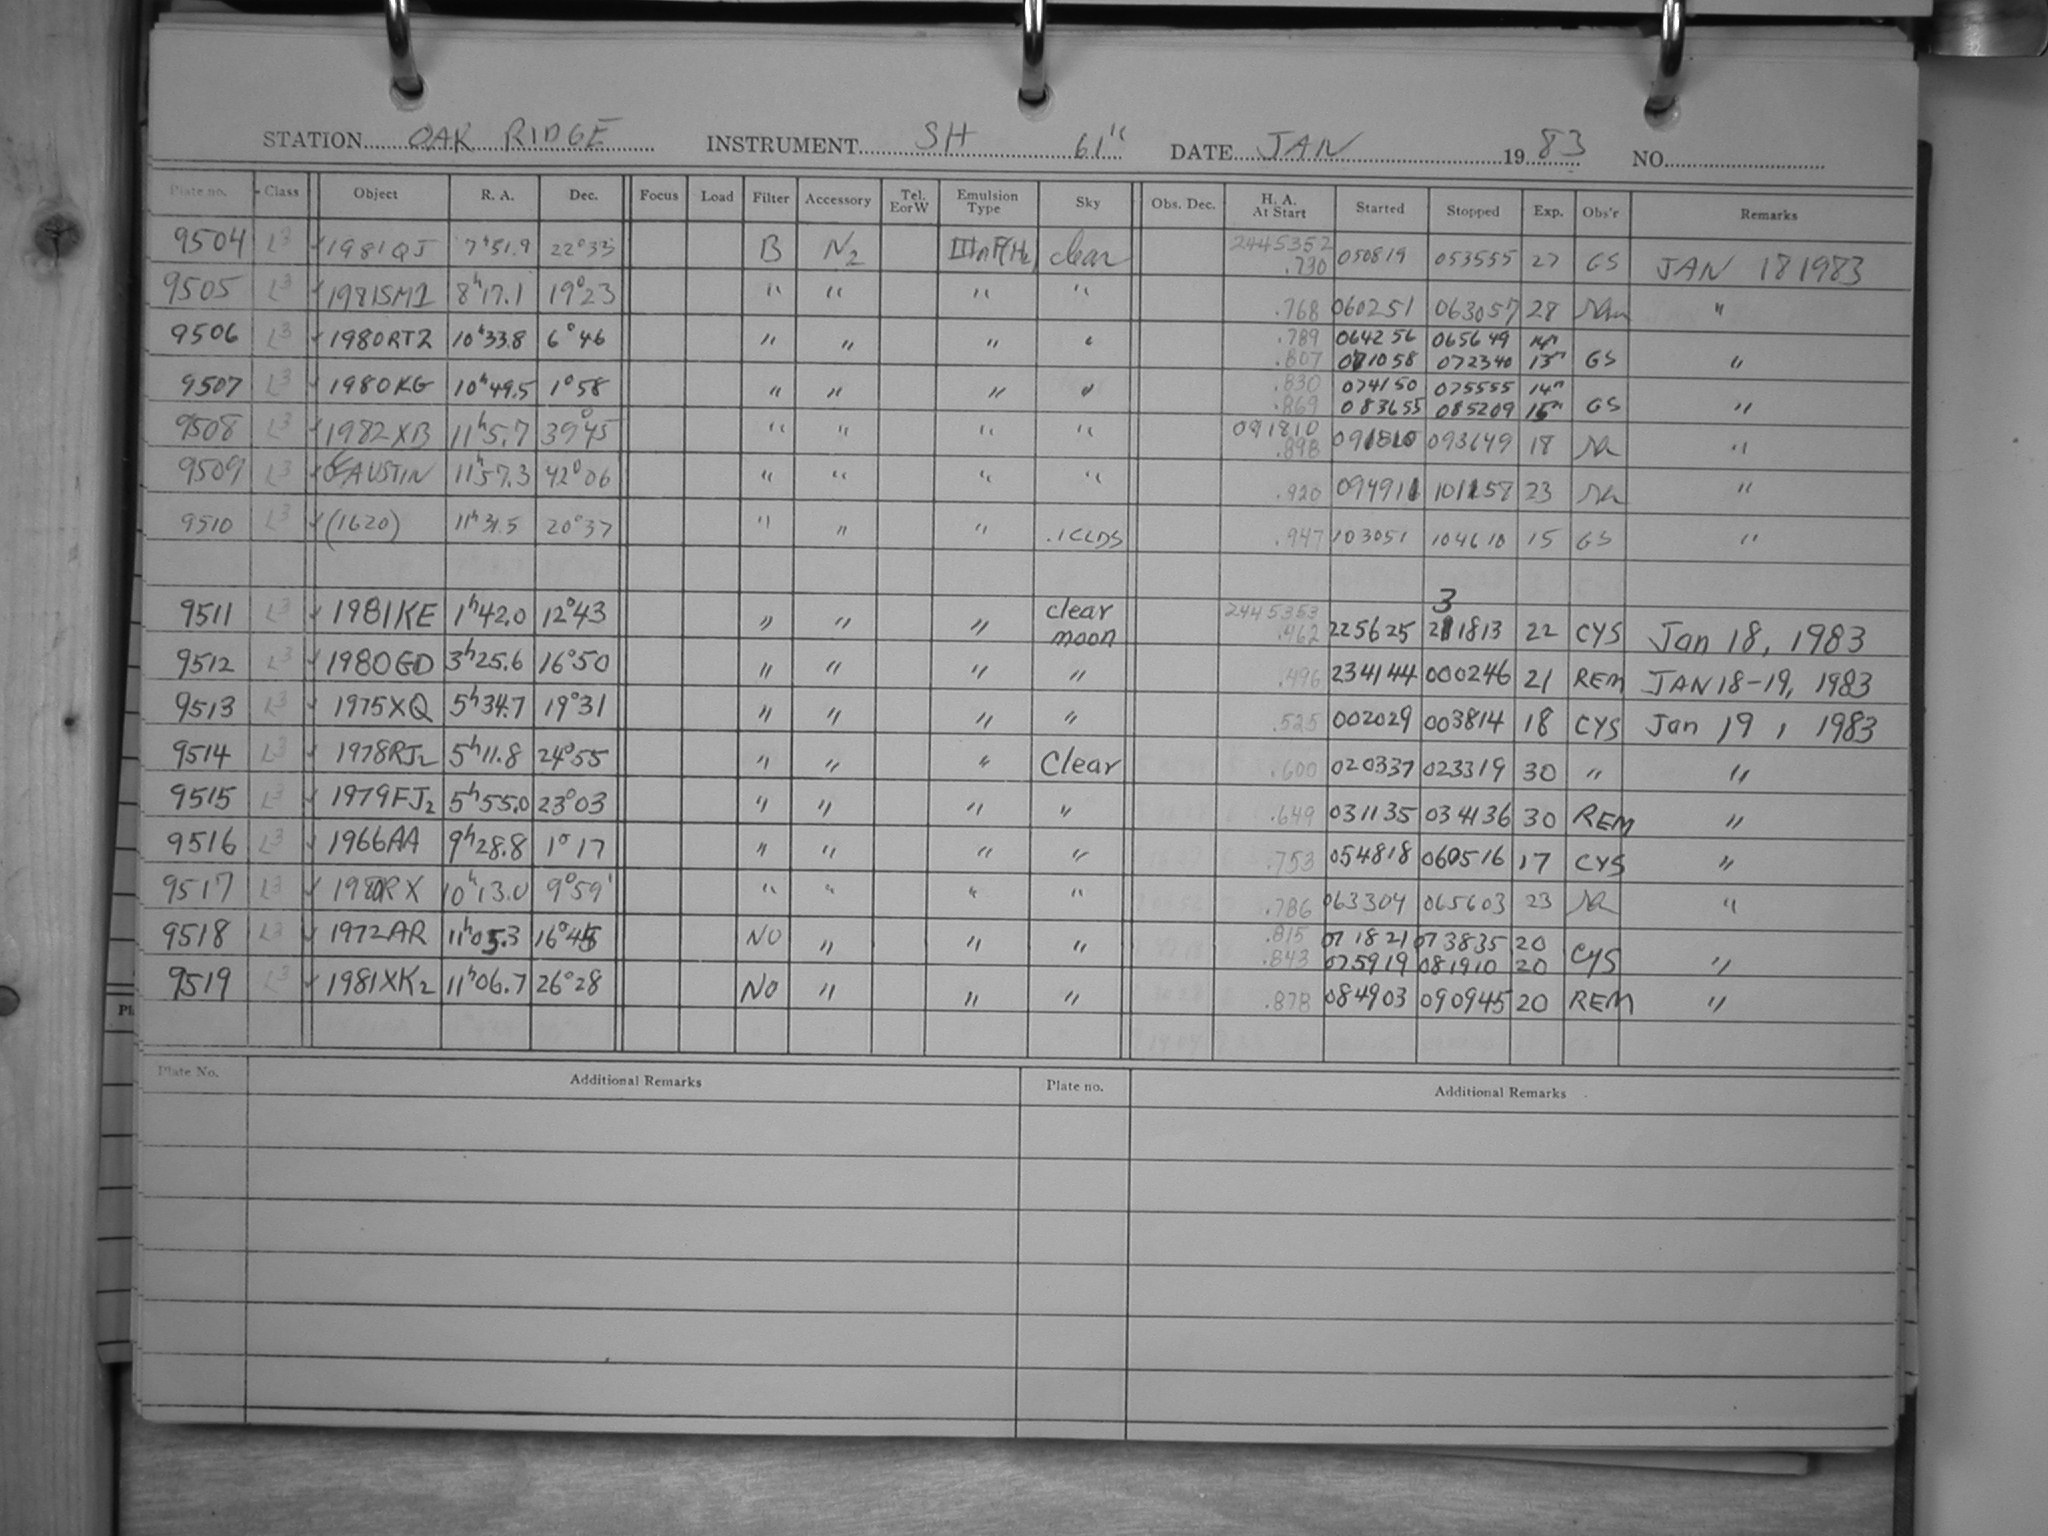 STATION OAK RIDGE INSTRUMENT SH 61" DATE JAN 19 83 NO.
Plate no. Class Object R. A. Dec. Focus Load Filter Accessory Tel. E or W Emulsion Type Sky Obs. Dec. H. A. At Start Started Stopped Exp. Obs'r Remarks
9504 L3 ✓ 1981QJ 7h51.9 22°33 B N2 clear 2445352 .730 050819 053555 27 GS JAN 18 1983
9505 L3 ✓ 1981SM1 8h17.1 19°23 " " " " .768 060251 063057 28 "
9506 L3 ✓ 1980RT2 10h33.8 6°46 " " " " .789 064256 065649 14m
.807 071058 072340 13m GS "
9507 L3 ✓ 1980KG 10h49.5 1°58 " " " " .830 074150 075555 14m
.869 083655 085209 15m GS "
9508 L3 ✓ 1982XB 11h5.7 39°45 " " " " 091810 .898 091810 093649 18 "
9509 L3 ✓ AUSTIN 11h57.3 42°06 " " " " .920 094911 101157 23 "
9510 L3 ✓ (1620) 11h31.5 20°37 " " " .1CLDS .947 103051 104610 15 GS "
9511 L3 ✓ 1981KE 1h42.0 12°43 " " " clear moon 2445353 .462 225625 231813 22 CYS Jan 18, 1983
9512 L3 ✓ 1980GD 3h25.6 16°50 " " " " .496 234144 000246 21 REM JAN 18-19, 1983
9513 L3 ✓ 1975XQ 5h34.7 19°31 " " " " .525 002029 003814 18 CYS Jan 19, 1983
9514 L3 ✓ 1978RJ2 5h11.8 24°55 " " " Clear .600 020337 023319 30 " "
9515 L3 ✓ 1979FJ2 5h55.0 23°03 " " " " .649 031135 034136 30 REM "
9516 L3 ✓ 1966AA 9h28.8 1°17 " " " " .753 054818 060516 17 CYS "
9517 L3 ✓ 1980RX 10h13.0 9°59' " " " " .786 063304 065603 23 "
9518 L3 ✓ 1972AR 11h05.3 16°45 NO " " " .815 071821 073835 20
.843 075919 081910 20 CYS "
9519 L3 ✓ 1981XK2 11h06.7 26°28 NO " " " .878 084903 090945 20 REM "
Plate No. Additional Remarks Plate no. Additional Remarks